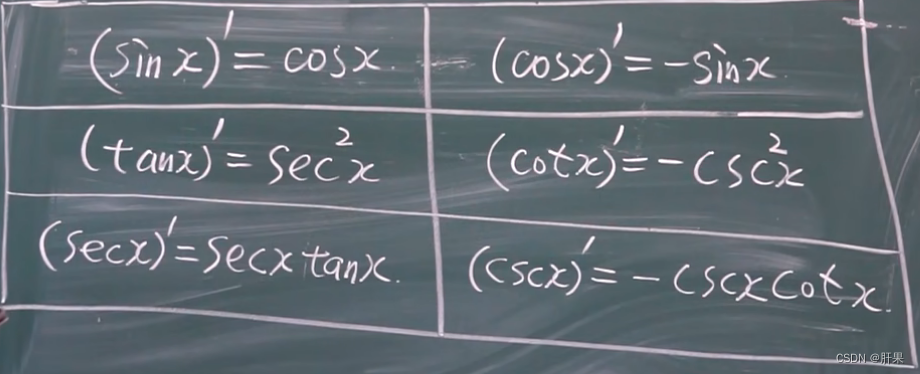 (sin x)' = cosx.
(cosx)' = -sinx.
(tanx)' = sec²x
(cotx)' = -csc²x
(secx)' = secx tanx.
(cscx)' = -cscx cotx.
CSDN @肝果